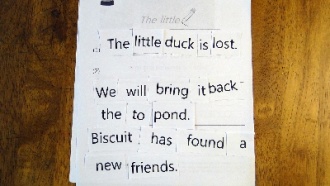 The little
The little duck is lost.
We will bring it back
the to pond.
Biscuit has found a
new friends.